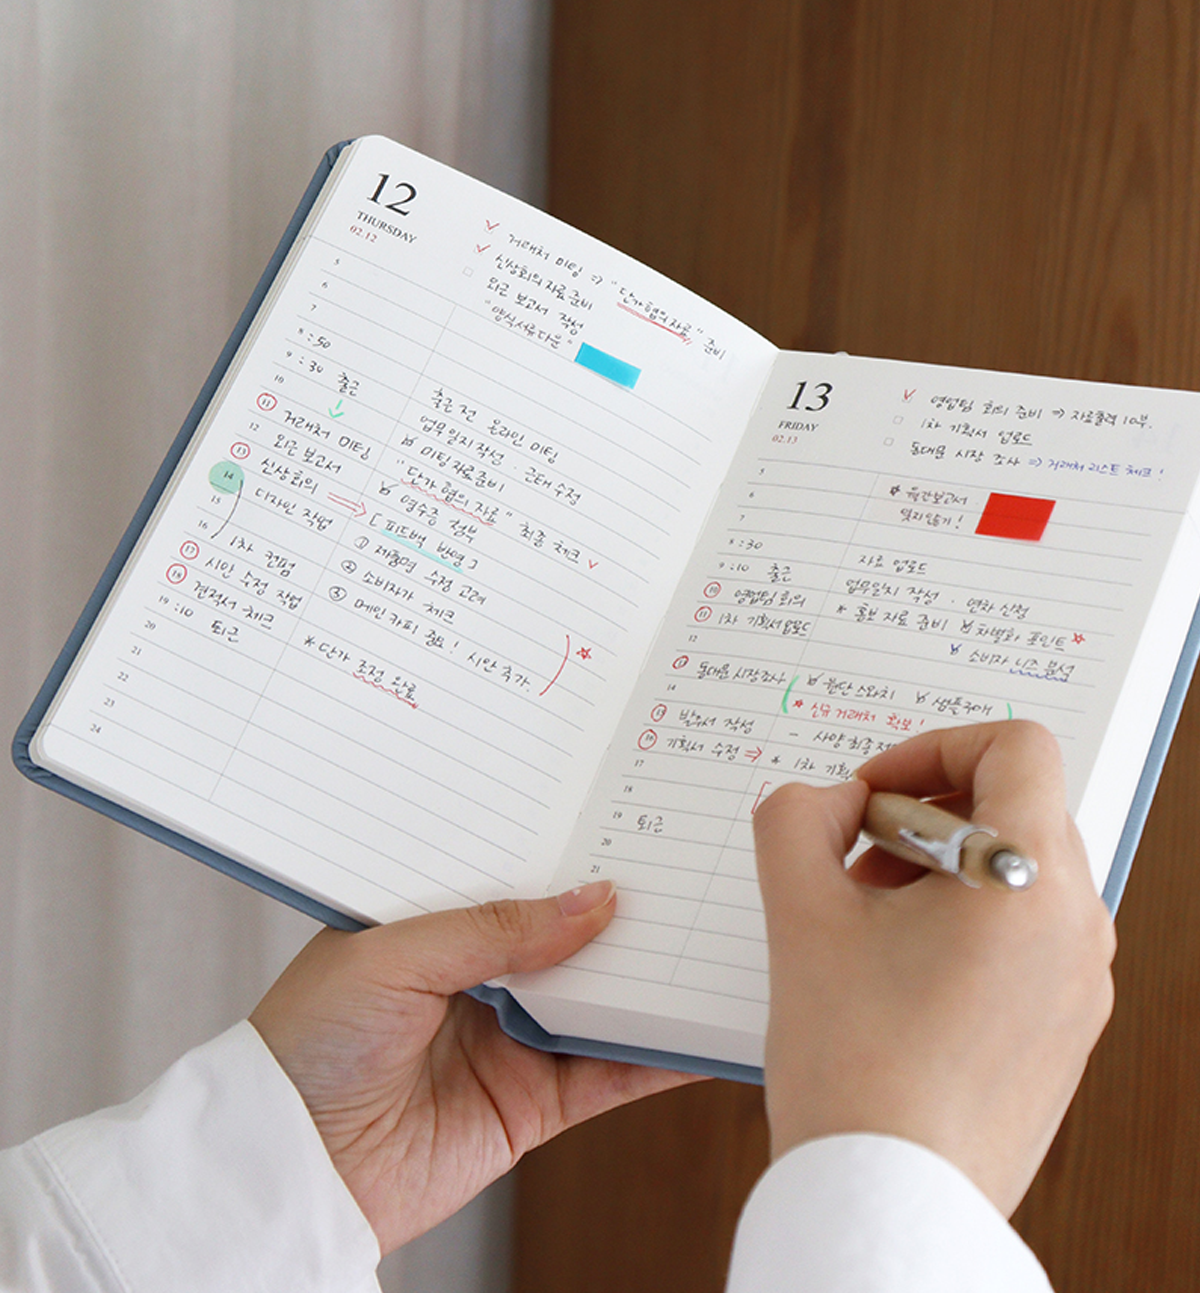 12
THURSDAY
02.12
거래처 미팅 => "단가 협의 자료" 준비
신상회의 자료 준비
외근 보고서 작성
"양식서류다운"
5
6
7
8 :50 출근
9 :30
10
11 거래처 미팅
12 외근 보고서
13 신상회의
14 디자인 작업
15
16 1차 컨펌
17 시안 수정 작업
18 견적서 체크
19 :10 퇴근
20
21
22
23
24
출근 전 온라인 미팅
업무일지작성 · 근태 수정
미팅자료준비
"단가 협의 자료" 최종 체크
영수증 첨부
[피드백 반영]
① 제품명 수정 고려
② 소비자가 체크
③ 메인 카피 중요! 시안 추가.
* 단가 조정 완료
13
FRIDAY
02.13
영업팀 회의 준비 => 자료출력 10부.
1차 기획서 업로드
동대문 시장 조사 => 거래처 리스트 체크!
월간보고서
잊지않기!
5
6
7
8 :30 자료 업로드
9 :10 출근 업무일지 작성 · 연차 신청
10 영업팀 회의 * 홍보 자료 준비 차별화 포인트
11 1차 기획서 업로드 소비자 니즈 분석
12
13 동대문 시장조사 원단 스와치 샘플구매
14 신규 거래처 확보!
15 발주서 작성 - 사양 최종
16 기획서 수정 => * 1차 기획
17
18
19 퇴근
20
21